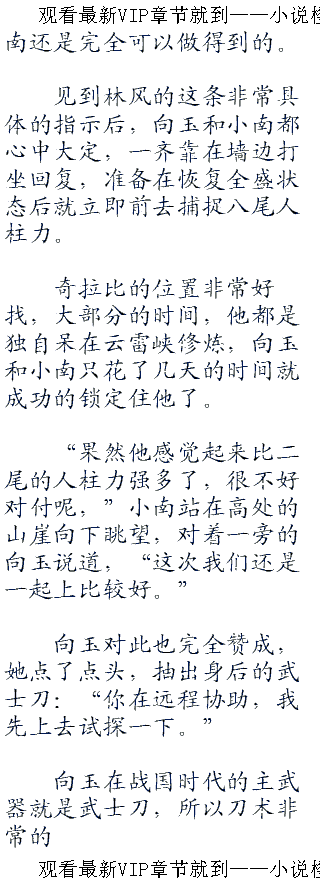 观看最新VIP章节就到——小说
南还是完全可以做得到的。
见到林风的这条非常具
体的指示后，向玉和小南都
心中大定，一齐靠在墙边打
坐回复，准备在恢复全盛状
态后就立即前去捕捉八尾人
柱力。
奇拉比的位置非常好
找，大部分的时间，他都是
独自呆在云雷峡修炼，向玉
和小南只花了几天的时间就
成功的锁定住他了。
“果然他感觉起来比二
尾的人柱力强多了，很不好
对付呢，”小南站在高处的
山崖向下眺望，对着一旁的
向玉说道，“这次我们还是
一起上比较好。”
向玉对此也完全赞成，
她点了点头，抽出身后的武
士刀：“你在远程协助，我
先上去试探一下。”
向玉在战国时代的主武
器就是武士刀，所以刀术非
常的
观看最新VIP章节就到——小说